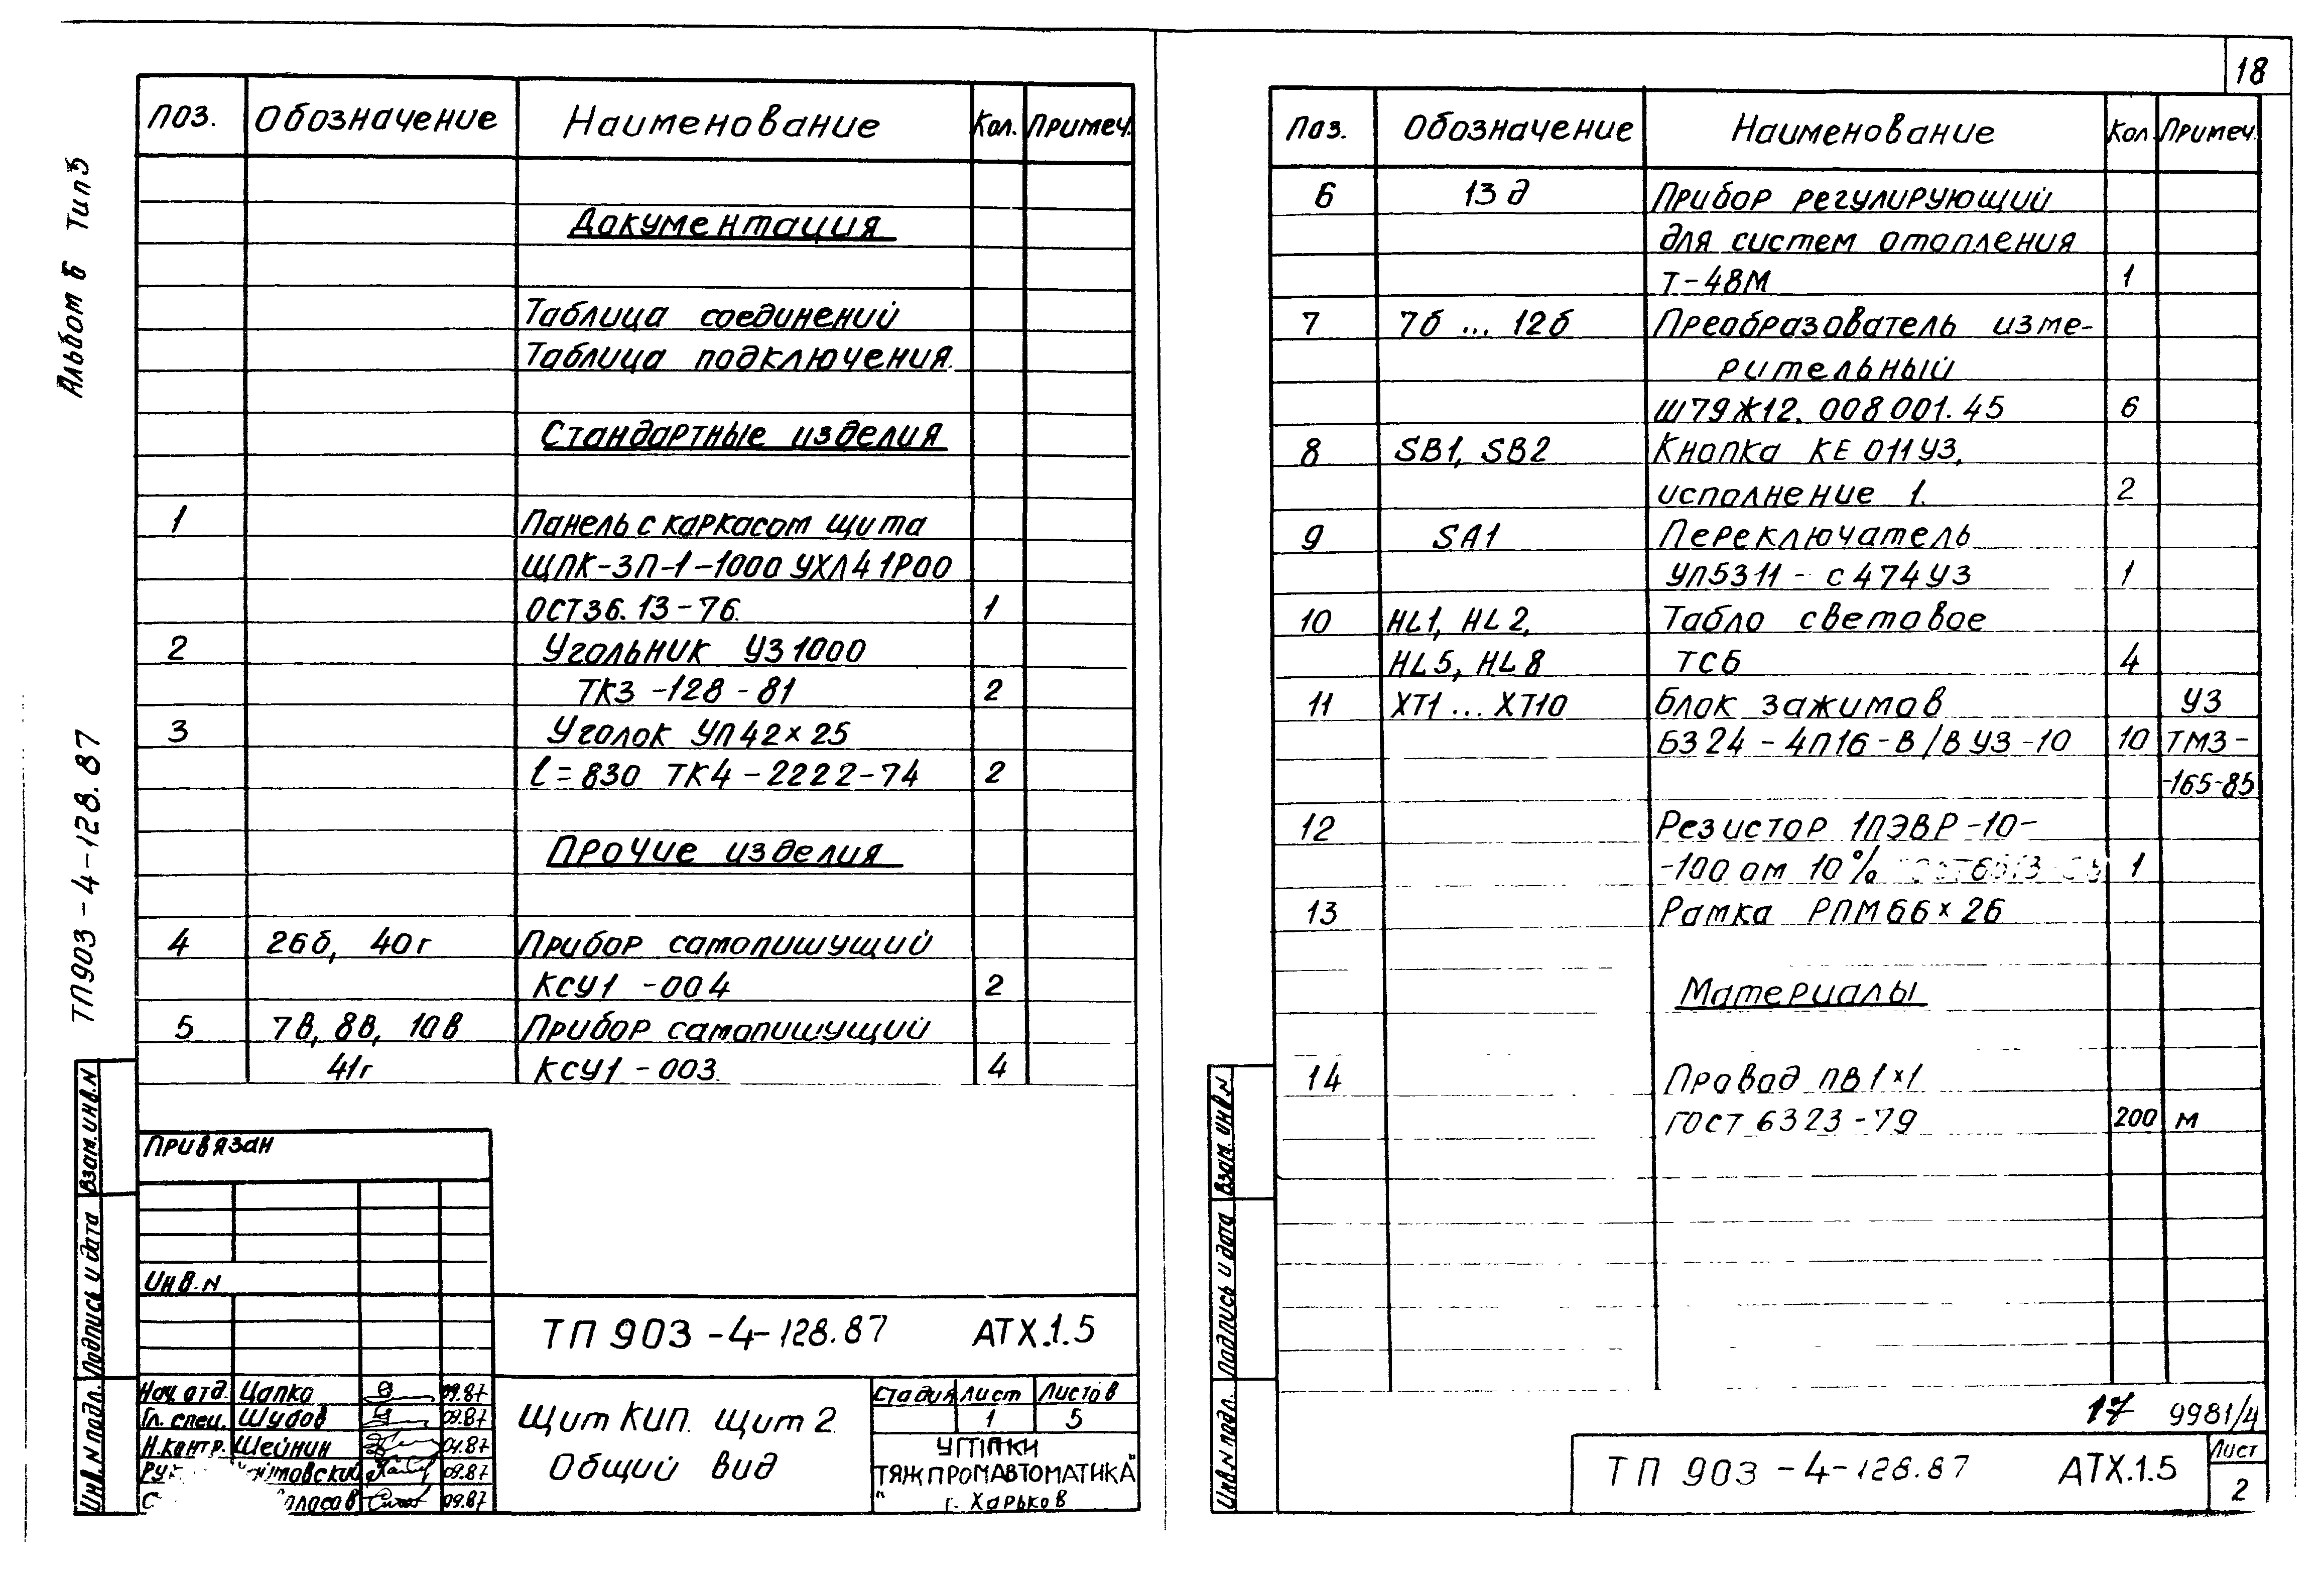 18
Альбом 6 Тип 5
ТП903-4-128.87
Поз. Обозначение Наименование Кол. Примеч.
Документация
Таблица соединений
Таблица подключения.
Стандартные изделия
1 Панель с каркасом щита
ЩПК-ЗП-1-1000 УХЛ4 1Р00
ОСТ36.13-76. 1
2 Угольник УЗ1000
ТК3-128-81 2
3 Уголок УП42×25
l=830 ТК4-2222-74 2
Прочие изделия
4 26б, 40г Прибор самопишущий
КСУ1-004 2
5 7в, 8в, 10в Прибор самопишущий
41г КСУ1-003. 4
Привязан
Инв.N
ТП 903-4-128.87 АТХ.1.5
Нач. отд. Цапко 09.87
Гл. спец. Шубов 09.87
Н.контр. Шейнин 09.87
09.87
09.87
Щит КИП. Щит 2.
Общий вид
Стадия Лист Листов
1 5
УГППКИ
"ТЯЖПРОМАВТОМАТИКА"
г. Харьков
Взам. инв.N
Подпись и дата
Инв. N подл.
Поз. Обозначение Наименование Кол. Примеч.
6 13д Прибор регулирующий
для систем отопления
Т-48М 1
7 7б ... 12б Преобразователь изме-
рительный
Ш79Ж12.008001.45 6
8 SB1, SB2 Кнопка КЕ 011У3,
исполнение 1. 2
9 SA1 Переключатель
УП5311-с474У3 1
10 HL1, HL2, Табло световое
HL5, HL8 ТСБ 4
11 XT1 ... XT10 Блок зажимов У3
БЗ24-4П16-В/ВУ3-10 10 ТМ3-
-165-85
12 Резистор 1ПЭВР-10-
-100 ом 10% 1
13 Рамка РПМ66×26
Материалы
14 Провод ПВ1×1
ГОСТ 6323-79 200 м
Взам. инв.N
Подпись и дата
Инв. N подл.
17 9981/4
ТП 903-4-128.87 АТХ.1.5
Лист
2